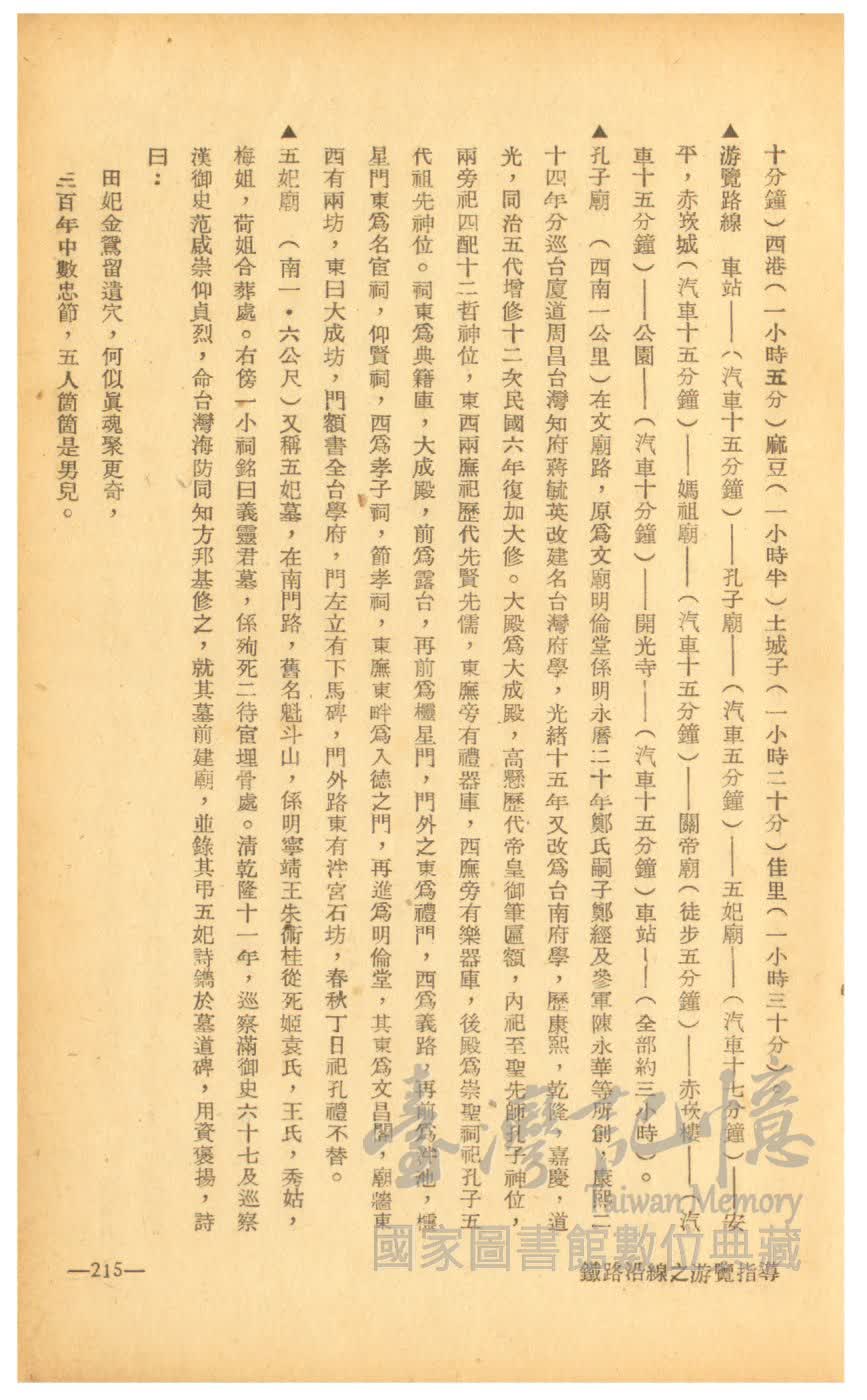 十分鐘）西港（一小時五分）麻豆（一小時半）土城子（一小時二十分）佳里（一小時三十分）。
▲游覽路線　車站——（汽車十五分鐘）——孔子廟——（汽車五分鐘）——五妃廟——（汽車十七分鐘）——安
平，赤崁城（汽車十五分鐘）——媽祖廟——（汽車十五分鐘）——關帝廟（徒步五分鐘）——赤崁樓——（汽
車十五分鐘）——公園——（汽車十分鐘）——開光寺——（汽車十五分鐘）車站——（全部約三小時）。
▲孔子廟　（西南一公里）在文廟路，原爲文廟明倫堂係明永曆二十年鄭氏嗣子鄭經及參軍陳永華等所創，康熙二
十四年分巡台廈道周昌台灣知府蔣毓英改建名台灣府學，光緒十五年又改爲台南府學，歷康熙，乾隆，嘉慶，道
光，同治五代增修十二次民國六年復加大修。大殿爲大成殿，高懸歷代帝皇御筆匾額，內祀至聖先師孔子神位，
兩旁祀四配十二哲神位，東西兩廡祀歷代先賢先儒，東廡旁有禮器庫，西廡旁有樂器庫，後殿爲崇聖祠祀孔子五
代祖先神位。祠東爲典籍庫，大成殿，前爲露台，再前爲櫺星門，門外之東爲禮門，西爲義路，再前爲泮池，櫺
星門東爲名宦祠，仰賢祠，西爲孝子祠，節孝祠，東廡東畔爲入德之門，再進爲明倫堂，其東爲文昌閣，廟牆東
西有兩坊，東曰大成坊，門額書全台學府，門左立有下馬碑，門外路東有泮宮石坊，春秋丁日祀孔禮不替。
▲五妃廟　（南一・六公尺）又稱五妃墓，在南門路，舊名魁斗山，係明寧靖王朱術桂從死姬袁氏，王氏，秀姑，
梅姐，荷姐合葬處。右傍一小祠銘曰義靈君墓，係殉死二待宦埋骨處。清乾隆十一年，巡察滿御史六十七及巡察
漢御史范咸崇仰貞烈，命台灣海防同知方邦基修之，就其墓前建廟，並錄其弔五妃詩鐫於墓道碑，用資褒揚，詩
曰：
田妃金鴛留遺穴，何似眞魂聚更奇，
三百年中數忠節，五人箇箇是男兒。
鐵路沿線之游覽指導
—215—
臺灣記憶
Taiwan Memory
國家圖書館數位典藏